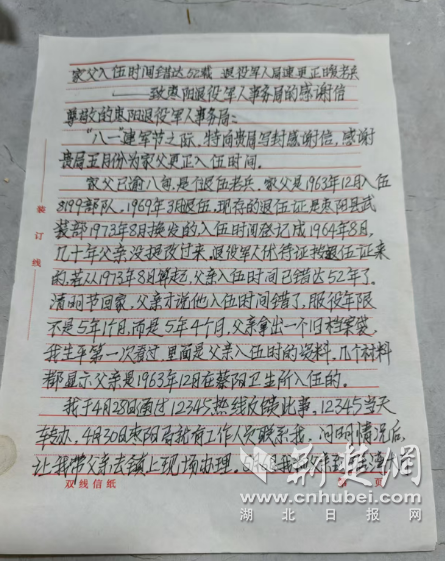 家父入伍时间错达52载 退役军人局速更正暖老兵
——致枣阳退役军人事务局的感谢信
尊敬的枣阳退役军人事务局:
"八一"建军节之际,特向贵局写封感谢信,感谢
贵局五月份为家父更正入伍时间。
家父已逾八旬,是个退伍老兵。家父是1963年12月入伍
8199部队,1969年3月退伍。现存的退伍证是枣阳县武
装部1973年8月换发的,入伍时间登记成1964年8月,
几十年父亲没提改过来,退役军人优待证按退伍证来
的,若从1973年8月算起,父亲入伍时间已错达52年了。
清明节回家,父亲才说他入伍时间错了,服役年限
不是5年1个月,而是5年4个月,父亲拿出一个旧档案袋,
我生平第一次看过,里面是父亲入伍时的资料,几个材料
都显示父亲是1963年12月在蔡阳卫生所入伍的。
我于4月28日通过12345热线反馈此事,12345当天
转办,4月30日枣阳局就有工作人员联系我,问明情况后,
让我带父亲去镇上现场办理。
装
订
线
双线信纸
第 页
荆楚网
www.cnhubei.com
湖北日报网